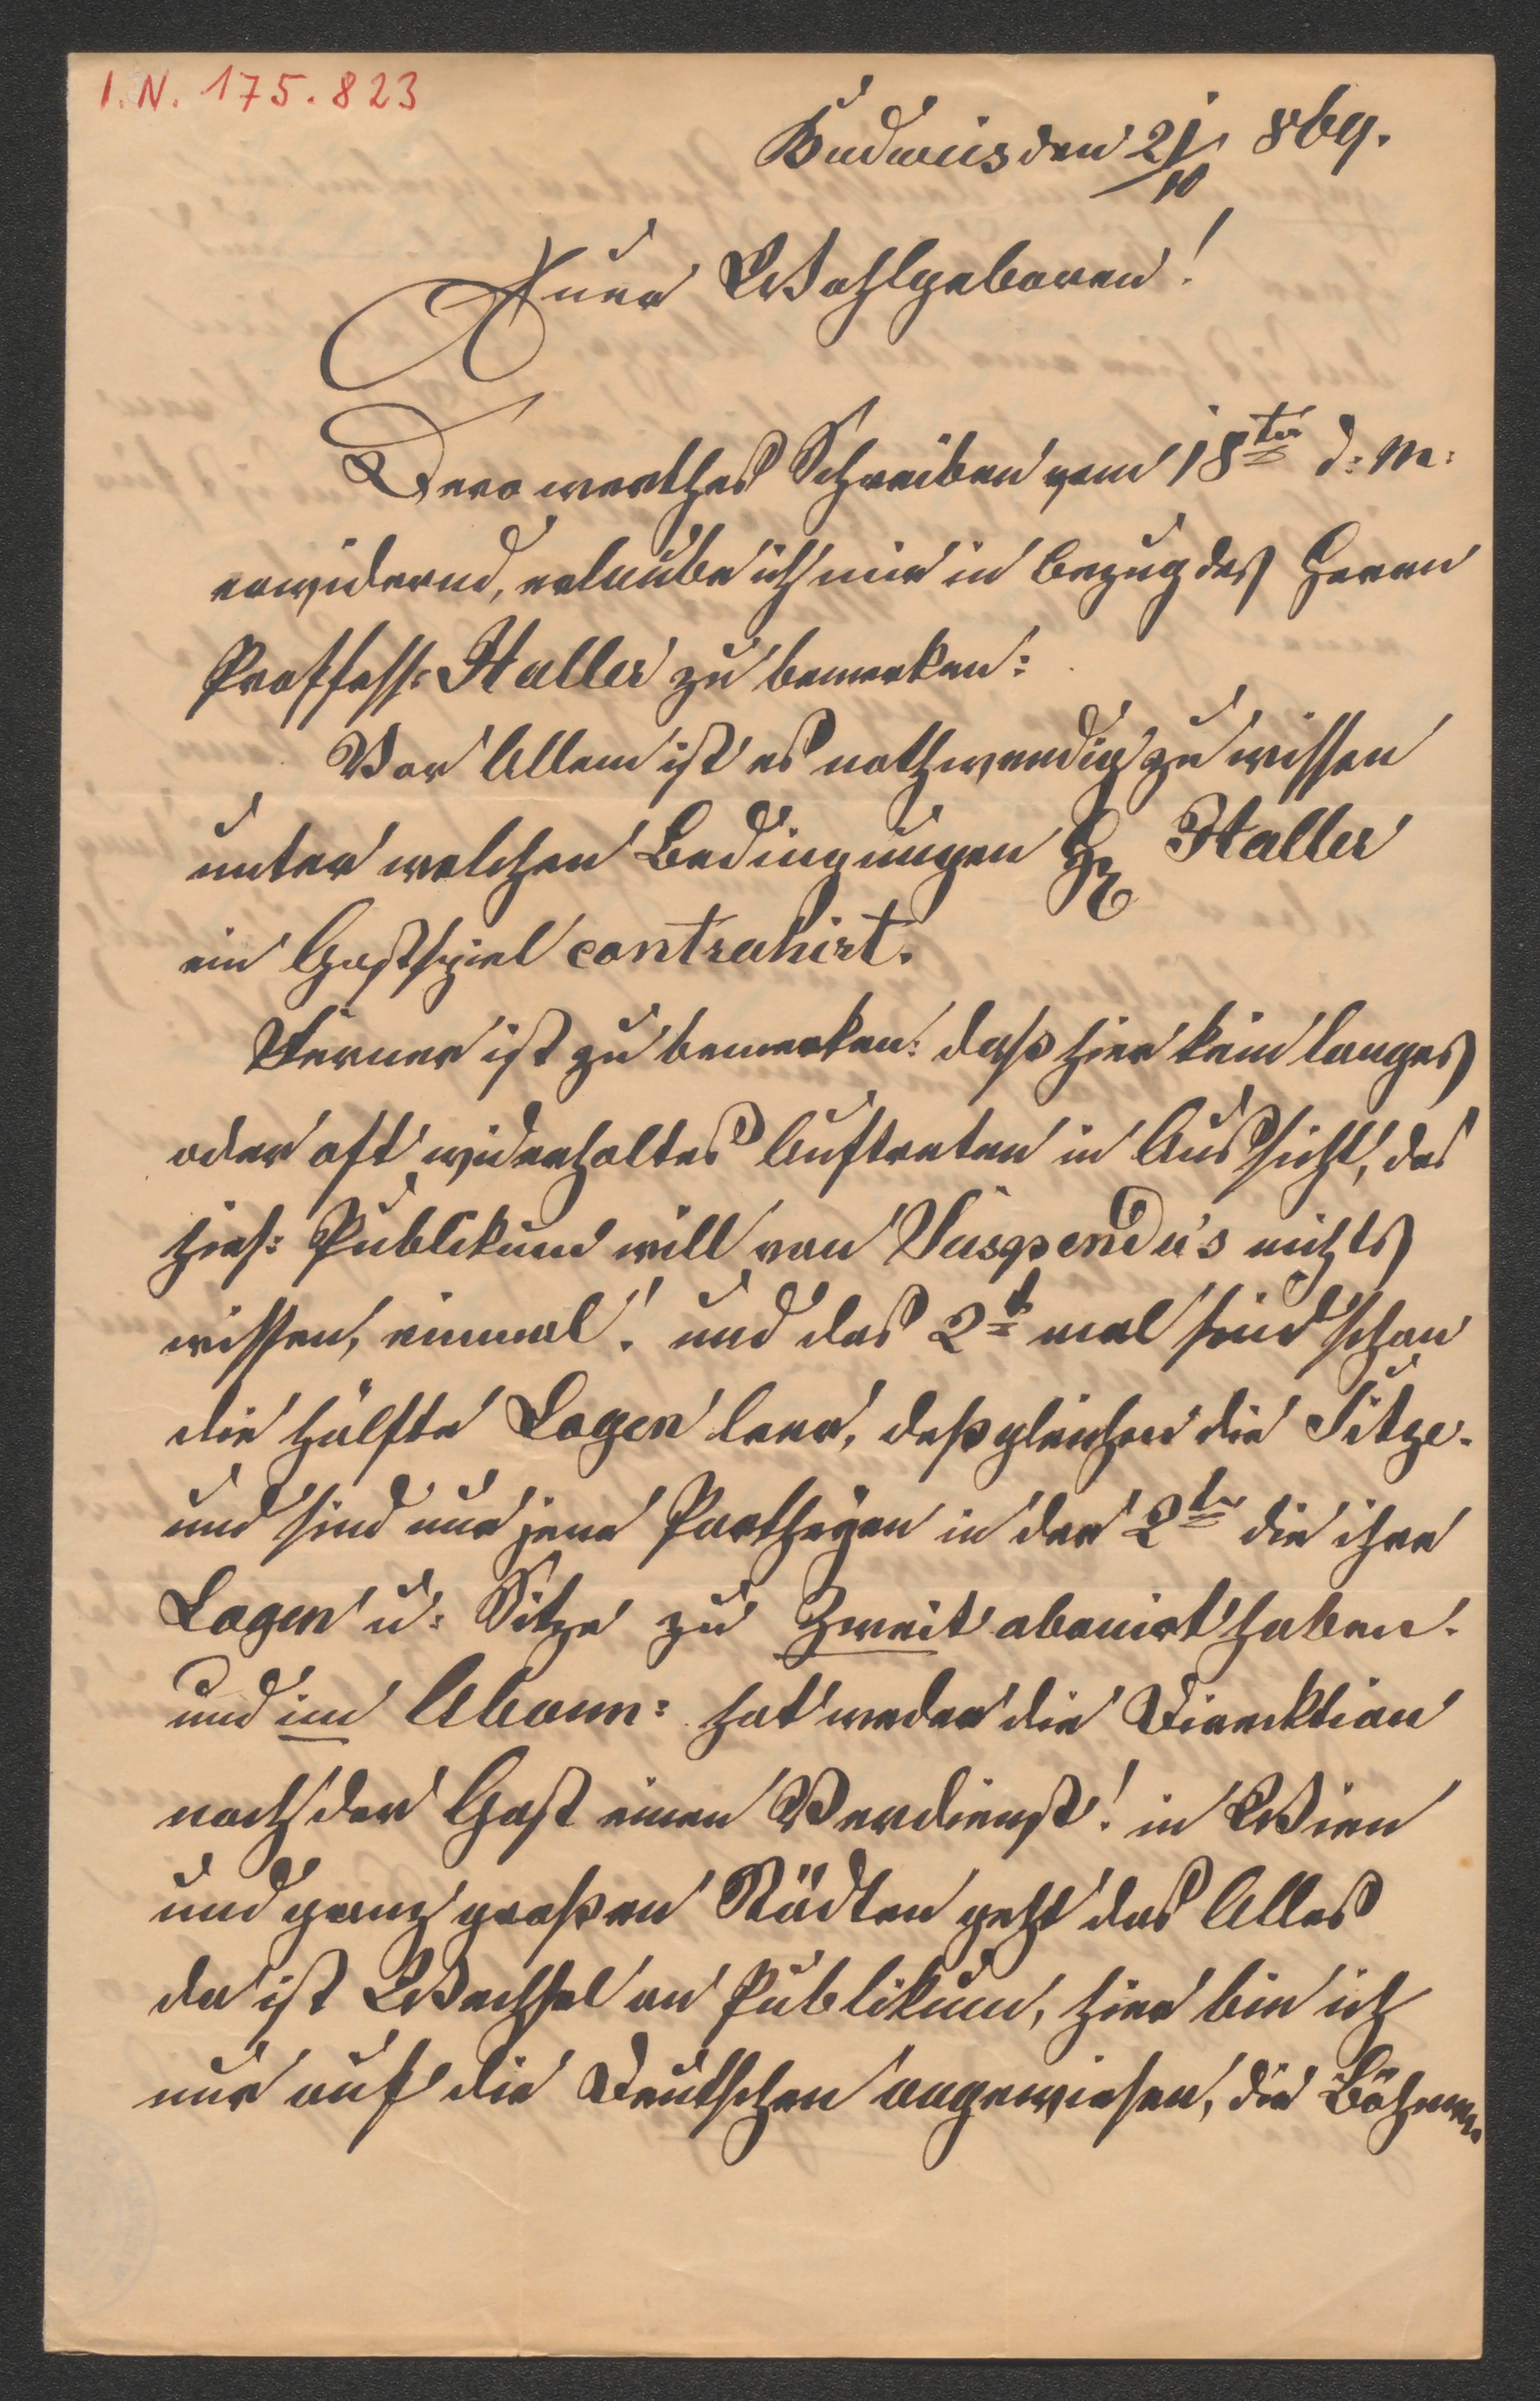 I. N. 175.823
Budweis den 21/10 869.
Euer Wohlgeboren!
Dero werthes Schreiben vom 18ten d: M:
erwidernd, erlaube ich mir in bezug des Herrn
Proffess: Haller zu bemerken:
Vor Allem ist es nothwendig zu wissen
unter welchen Bedingungen Hr Haller
ein Gastspiel contrahirt.
Ferner ist zu bemerken: daß hier kein langes
oder oft widerholtes Auftreten in Aussicht, das
hies: Publikum will von Suspendu's nichts
wissen, einmal! und das 2t mal sind schon
die Hälfte Logen leer, deßgleichen die Sitze.
und sind nur jene Partheyen in der 2ten die ihre
Logen u: Sitze zu Zweit abonirt haben.
und im Abonn: hat weder die Direcktion
noch der Gast einen Verdienst! in Wien
und ganz großen Städten geht das Alles
da ist Wechsel an Publikum, hier bin ich
nur auf die Deutschen angewiesen, die Böhmen